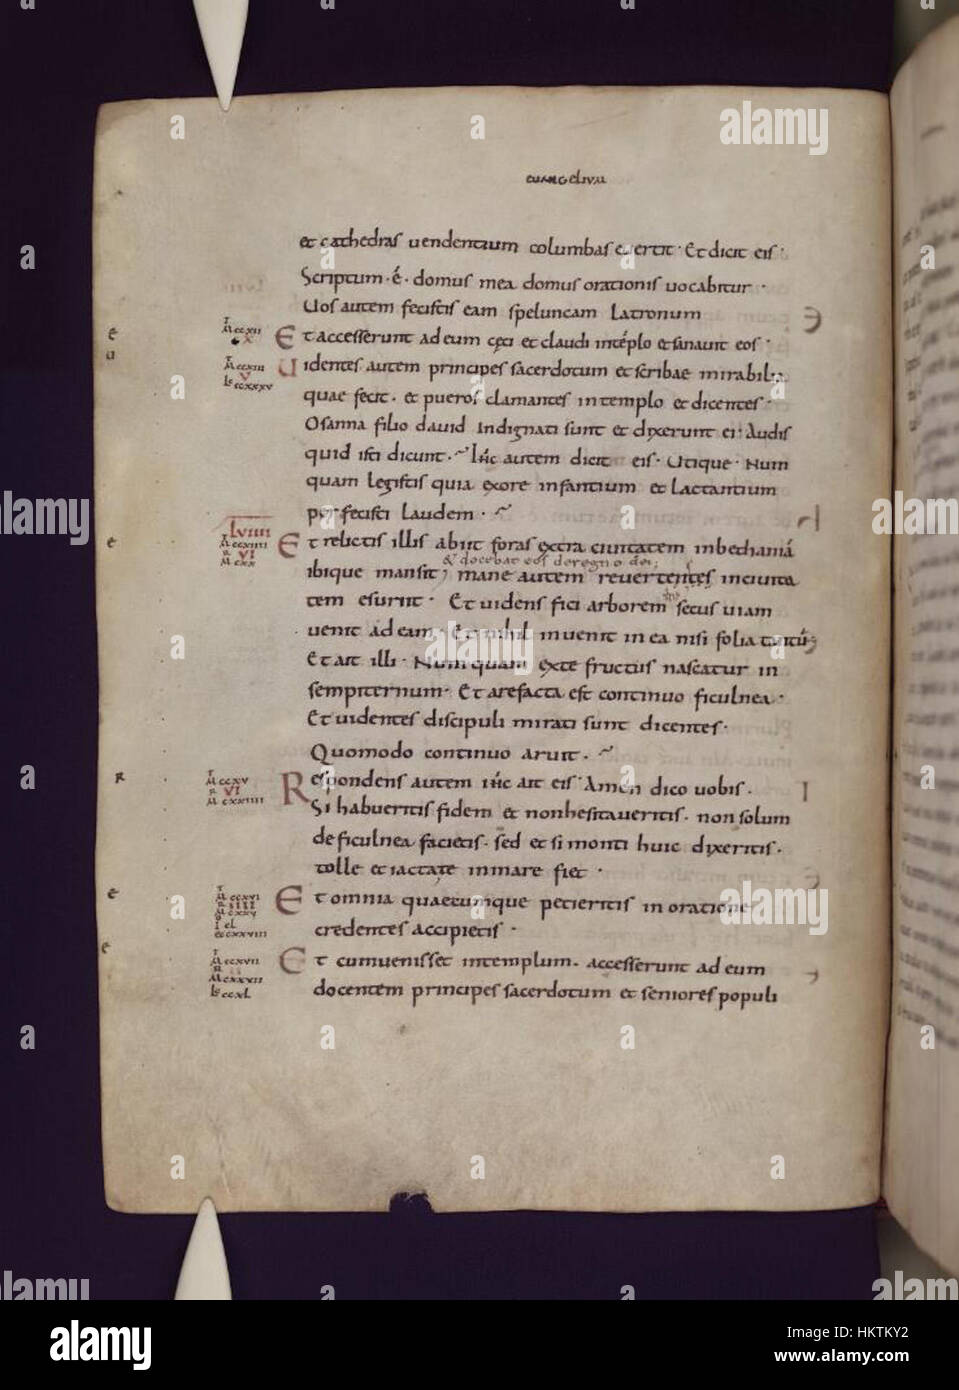 euangelium
et cathedras uendentium columbas euertit · Et dicit eis ·
Scriptum · ē · domus mea domus orationis uocabitur ·
Uos autem fecistis eam speluncam latronum
Et accesserunt ad eum ceci et claudi intēplo et sanauit eos ·
Uidentes autem principes sacerdotum et scribae mirabilia
quae fecit · et pueros clamantes in templo et dicentes ·
Osanna filio dauid Indignati sunt et dixerunt ei · Audis
quid isti dicunt · Ihc autem dicit eis · Utique · Num
quam legistis quia exore infantium et lactantium
perfecisti laudem ·
Et relictis illis abiit foras extra ciuitatem inbethaniā
& docebat eos deregno dei ;
ibique mansit ; mane autem reuertentes inciuita
tem esuriit · Et uidens fici arborem secus uiam
uenit ad eam · Et nihil inuenit in ea nisi folia tantū
Et ait illi · Numquam exte fructus nascatur in
sempiternum · Et arefacta est continuo ficulnea ·
Et uidentes discipuli mirati sunt dicentes ·
Quomodo continuo aruit ·
Respondens autem ihc ait eis Amen dico uobis ·
Si habueritis fidem et nonhesitaueritis · non solum
de ficulnea facietis · sed et si monti huic dixeritis ·
tolle et iactate inmare fiet ·
Et omnia quaecumque petieritis in oratione
credentes accipietis ·
Et cumuenisset intemplum · accesserunt ad eum
docentem principes sacerdotum et seniores populi
e
u
e
R
e
e
M ccxii
x
M ccxiii
V
ls ccxxxv
Lviiii
M ccxiiii
VI
M cxx
M ccxv
VI
M cxxiiii
M ccxvi
M cxxv
M ccxvii
M cxxxii
ls ccxl
alamy
a
Image ID: HKTKY2
www.alamy.com